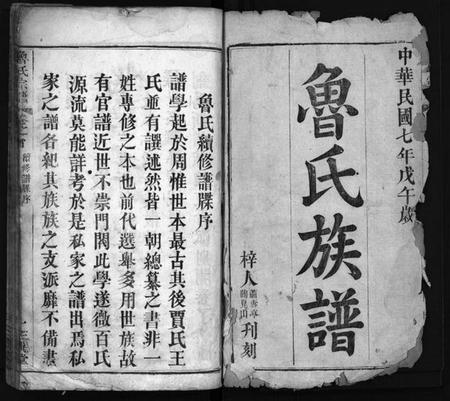 中華民國七年戊午歲
魯氏族譜
梓人
刊刻
魯氏續修譜牒序
譜學起於周惟世本最古其後賈氏王
氏並有譔述然皆一朝總纂之書非一
姓專修之本也前代選舉多用世族故
有官譜近世不崇門閥此學遂微百氏
源流莫能詳考於是私家之譜出焉私
家之譜各紀其族族之支派靡不備書
魯氏宗譜
續修譜牒序